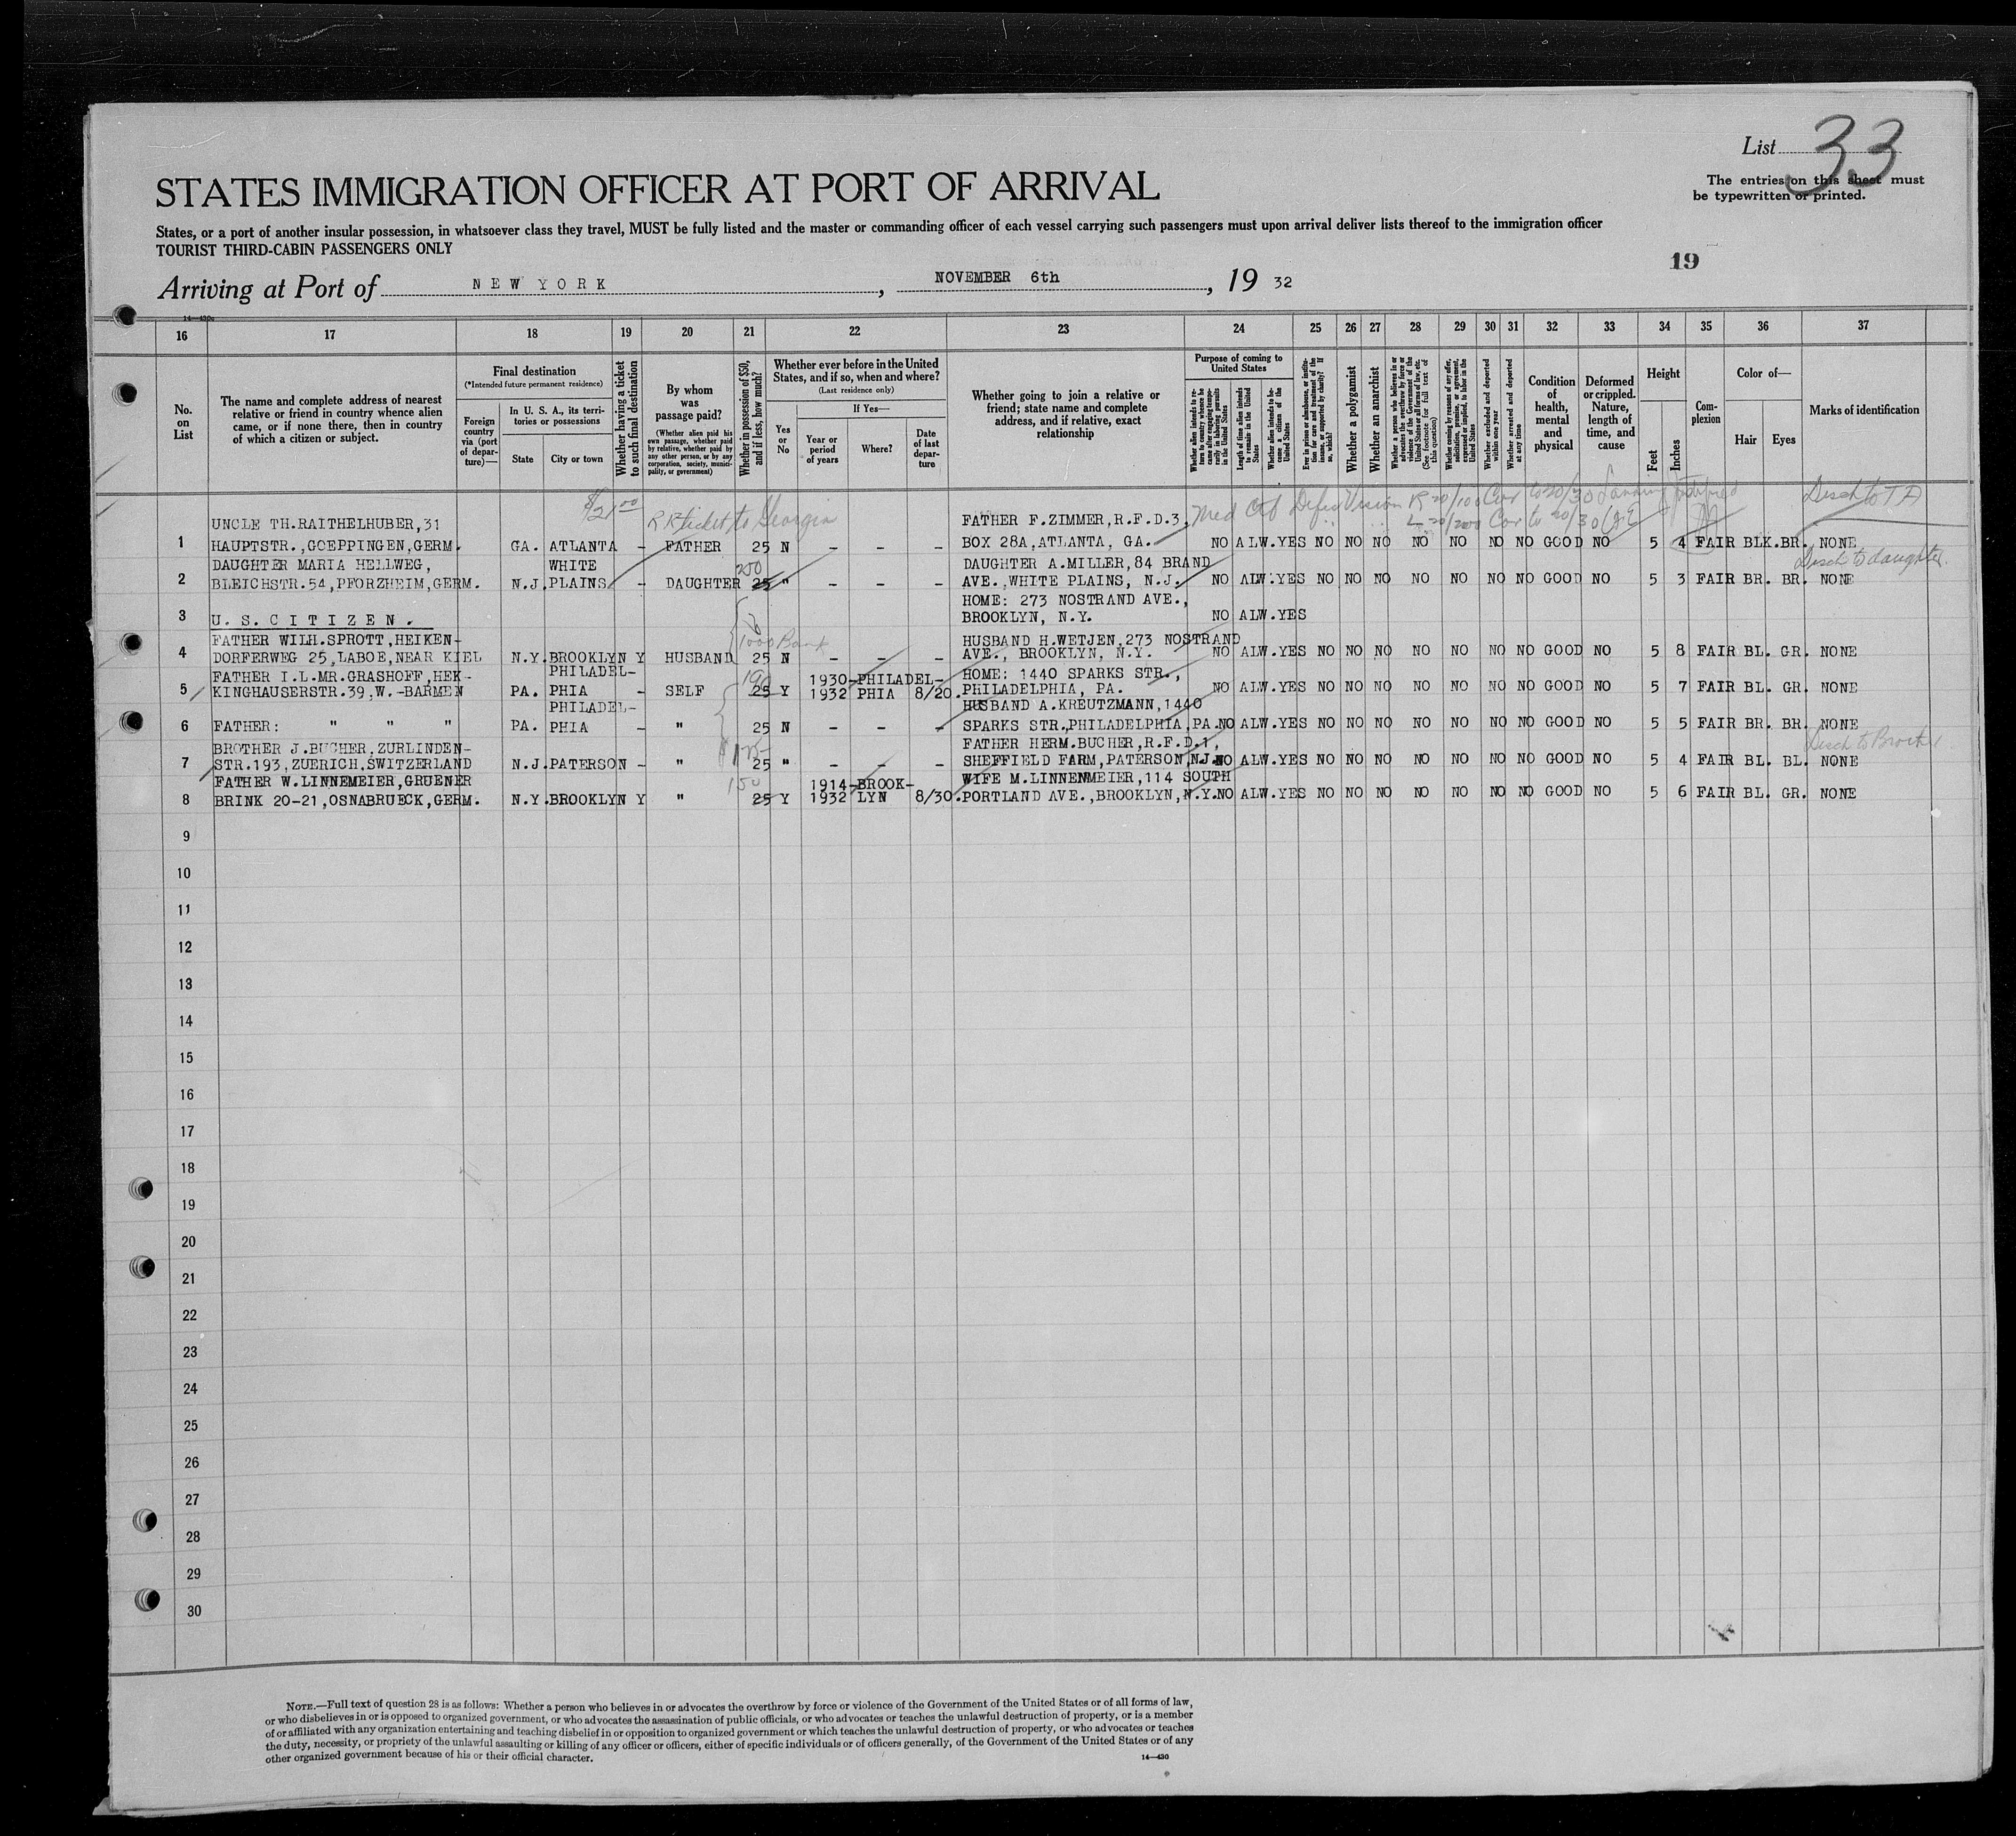 List 33
The entries on this sheet must
be typewritten or printed.
STATES IMMIGRATION OFFICER AT PORT OF ARRIVAL
States, or a port of another insular possession, in whatsoever class they travel, MUST be fully listed and the master or commanding officer of each vessel carrying such passengers must upon arrival deliver lists thereof to the immigration officer
TOURIST THIRD-CABIN PASSENGERS ONLY
19
Arriving at Port of NEW YORK, NOVEMBER 6th, 19 32
14—430
16 17 18 19 20 21 22 23 24 25 26 27 28 29 30 31 32 33 34 35 36 37
No. on List
The name and complete address of nearest relative or friend in country whence alien came, or if none there, then in country of which a citizen or subject.
Final destination
(*Intended future permanent residence)
Foreign country via (port of departure)—
In U. S. A., its territories or possessions
State
City or town
Whether having a ticket to such final destination
By whom was passage paid?
(Whether alien paid his own passage, whether paid by relative, whether paid by any other person, or by any corporation, society, municipality, or government)
Whether in possession of $50, and if less, how much?
Whether ever before in the United States, and if so, when and where?
(Last residence only)
If Yes—
Yes or No
Year or period of years
Where?
Date of last departure
Whether going to join a relative or friend; state name and complete address, and if relative, exact relationship
Purpose of coming to United States
Whether alien intends to return to country whence he came after engaging temporarily in laboring pursuits in the United States
Length of time alien intends to remain in the United States
Whether alien intends to become a citizen of the United States
Ever in prison or almshouse, or institution for care and treatment of the insane, or supported by charity? If so, which?
Whether a polygamist
Whether an anarchist
Whether a person who believes in or advocates the overthrow by force or violence of the Government of the United States or all forms of law, etc. (See footnote for full text of this question)
Whether coming by reasons of any offer, solicitation, promise, or agreement, expressed or implied, to labor in the United States
Whether excluded and deported within one year
Whether arrested and deported at any time
Condition of health, mental and physical
Deformed or crippled. Nature, length of time, and cause
Height
Feet
Inches
Complexion
Color of—
Hair
Eyes
Marks of identification
$21 00 RR ticket to Georgia Med Ctf Defec Vision R 20/100 Cor to 20/30 Disch to T A
L 20/200 Cor to 20/30
UNCLE TH.RAITHELHUBER,31 FATHER F.ZIMMER,R.F.D.3,
1 HAUPTSTR.,GOEPPINGEN,GERM. GA. ATLANTA - FATHER 25 N - - - BOX 28A,ATLANTA, GA. NO ALW.YES NO NO NO NO NO NO NO GOOD NO 5 4 FAIR BLK.BR. NONE
DAUGHTER MARIA HELLWEG, WHITE 250 DAUGHTER A.MILLER,84 BRAND Disch to daughter.
2 BLEICHSTR.54,PFORZHEIM,GERM. N.J.PLAINS - DAUGHTER 25 " - - - AVE.,WHITE PLAINS, N.J. NO ALW.YES NO NO NO NO NO NO NO GOOD NO 5 3 FAIR BR. BR. NONE
HOME: 273 NOSTRAND AVE.,
3 U. S. C I T I Z E N . BROOKLYN, N.Y. NO ALW.YES
FATHER WILH.SPROTT,HEIKEN- 1000 Bank HUSBAND H.WETJEN,273 NOSTRAND
4 DORFERWEG 25,LABOE,NEAR KIEL N.Y.BROOKLYN Y HUSBAND 25 N - - - AVE., BROOKLYN, N.Y. NO ALW.YES NO NO NO NO NO NO NO GOOD NO 5 8 FAIR BL. GR. NONE
FATHER I.L.MR.GRASHOFF,HEK- PHILADEL- 190 1930-PHILADEL- HOME: 1440 SPARKS STR.,
5 KINGHAUSERSTR.39,W.-BARMEN PA. PHIA - SELF 25 Y 1932 PHIA 8/20. PHILADELPHIA, PA. NO ALW.YES NO NO NO NO NO NO NO GOOD NO 5 7 FAIR BL. GR. NONE
PHILADEL- HUSBAND A.KREUTZMANN,1440
6 FATHER: " " " PA. PHIA - " 25 N - - - SPARKS STR.,PHILADELPHIA,PA.NO ALW.YES NO NO NO NO NO NO NO GOOD NO 5 5 FAIR BR. BR. NONE
BROTHER J.BUCHER,ZURLINDEN- FATHER HERM.BUCHER,R.F.D.1, Disch to Brother
7 STR.193,ZUERICH,SWITZERLAND N.J.PATERSON - " 25 " - - - SHEFFIELD FARM,PATERSON,N.J.NO ALW.YES NO NO NO NO NO NO NO GOOD NO 5 4 FAIR BL. BL. NONE
FATHER W.LINNEMEIER,GRUENER 150 1914-BROOK- WIFE M.LINNENMEIER,114 SOUTH
8 BRINK 20-21,OSNABRUECK,GERM. N.Y.BROOKLYN Y " 25 Y 1932 LYN 8/30. PORTLAND AVE.,BROOKLYN,N.Y.NO ALW.YES NO NO NO NO NO NO NO GOOD NO 5 6 FAIR BL. GR. NONE
9
10
11
12
13
14
15
16
17
18
19
20
21
22
23
24
25
26
27
28
29
30
NOTE.—Full text of question 28 is as follows: Whether a person who believes in or advocates the overthrow by force or violence of the Government of the United States or of all forms of law,
or who disbelieves in or is opposed to organized government, or who advocates the assassination of public officials, or who advocates or teaches the unlawful destruction of property, or is a member
of or affiliated with any organization entertaining and teaching disbelief in or opposition to organized government or which teaches the unlawful destruction of property, or who advocates or teaches
the duty, necessity, or propriety of the unlawful assaulting or killing of any officer or officers, either of specific individuals or of officers generally, of the Government of the United States or of any
other organized government because of his or their official character.
14—430